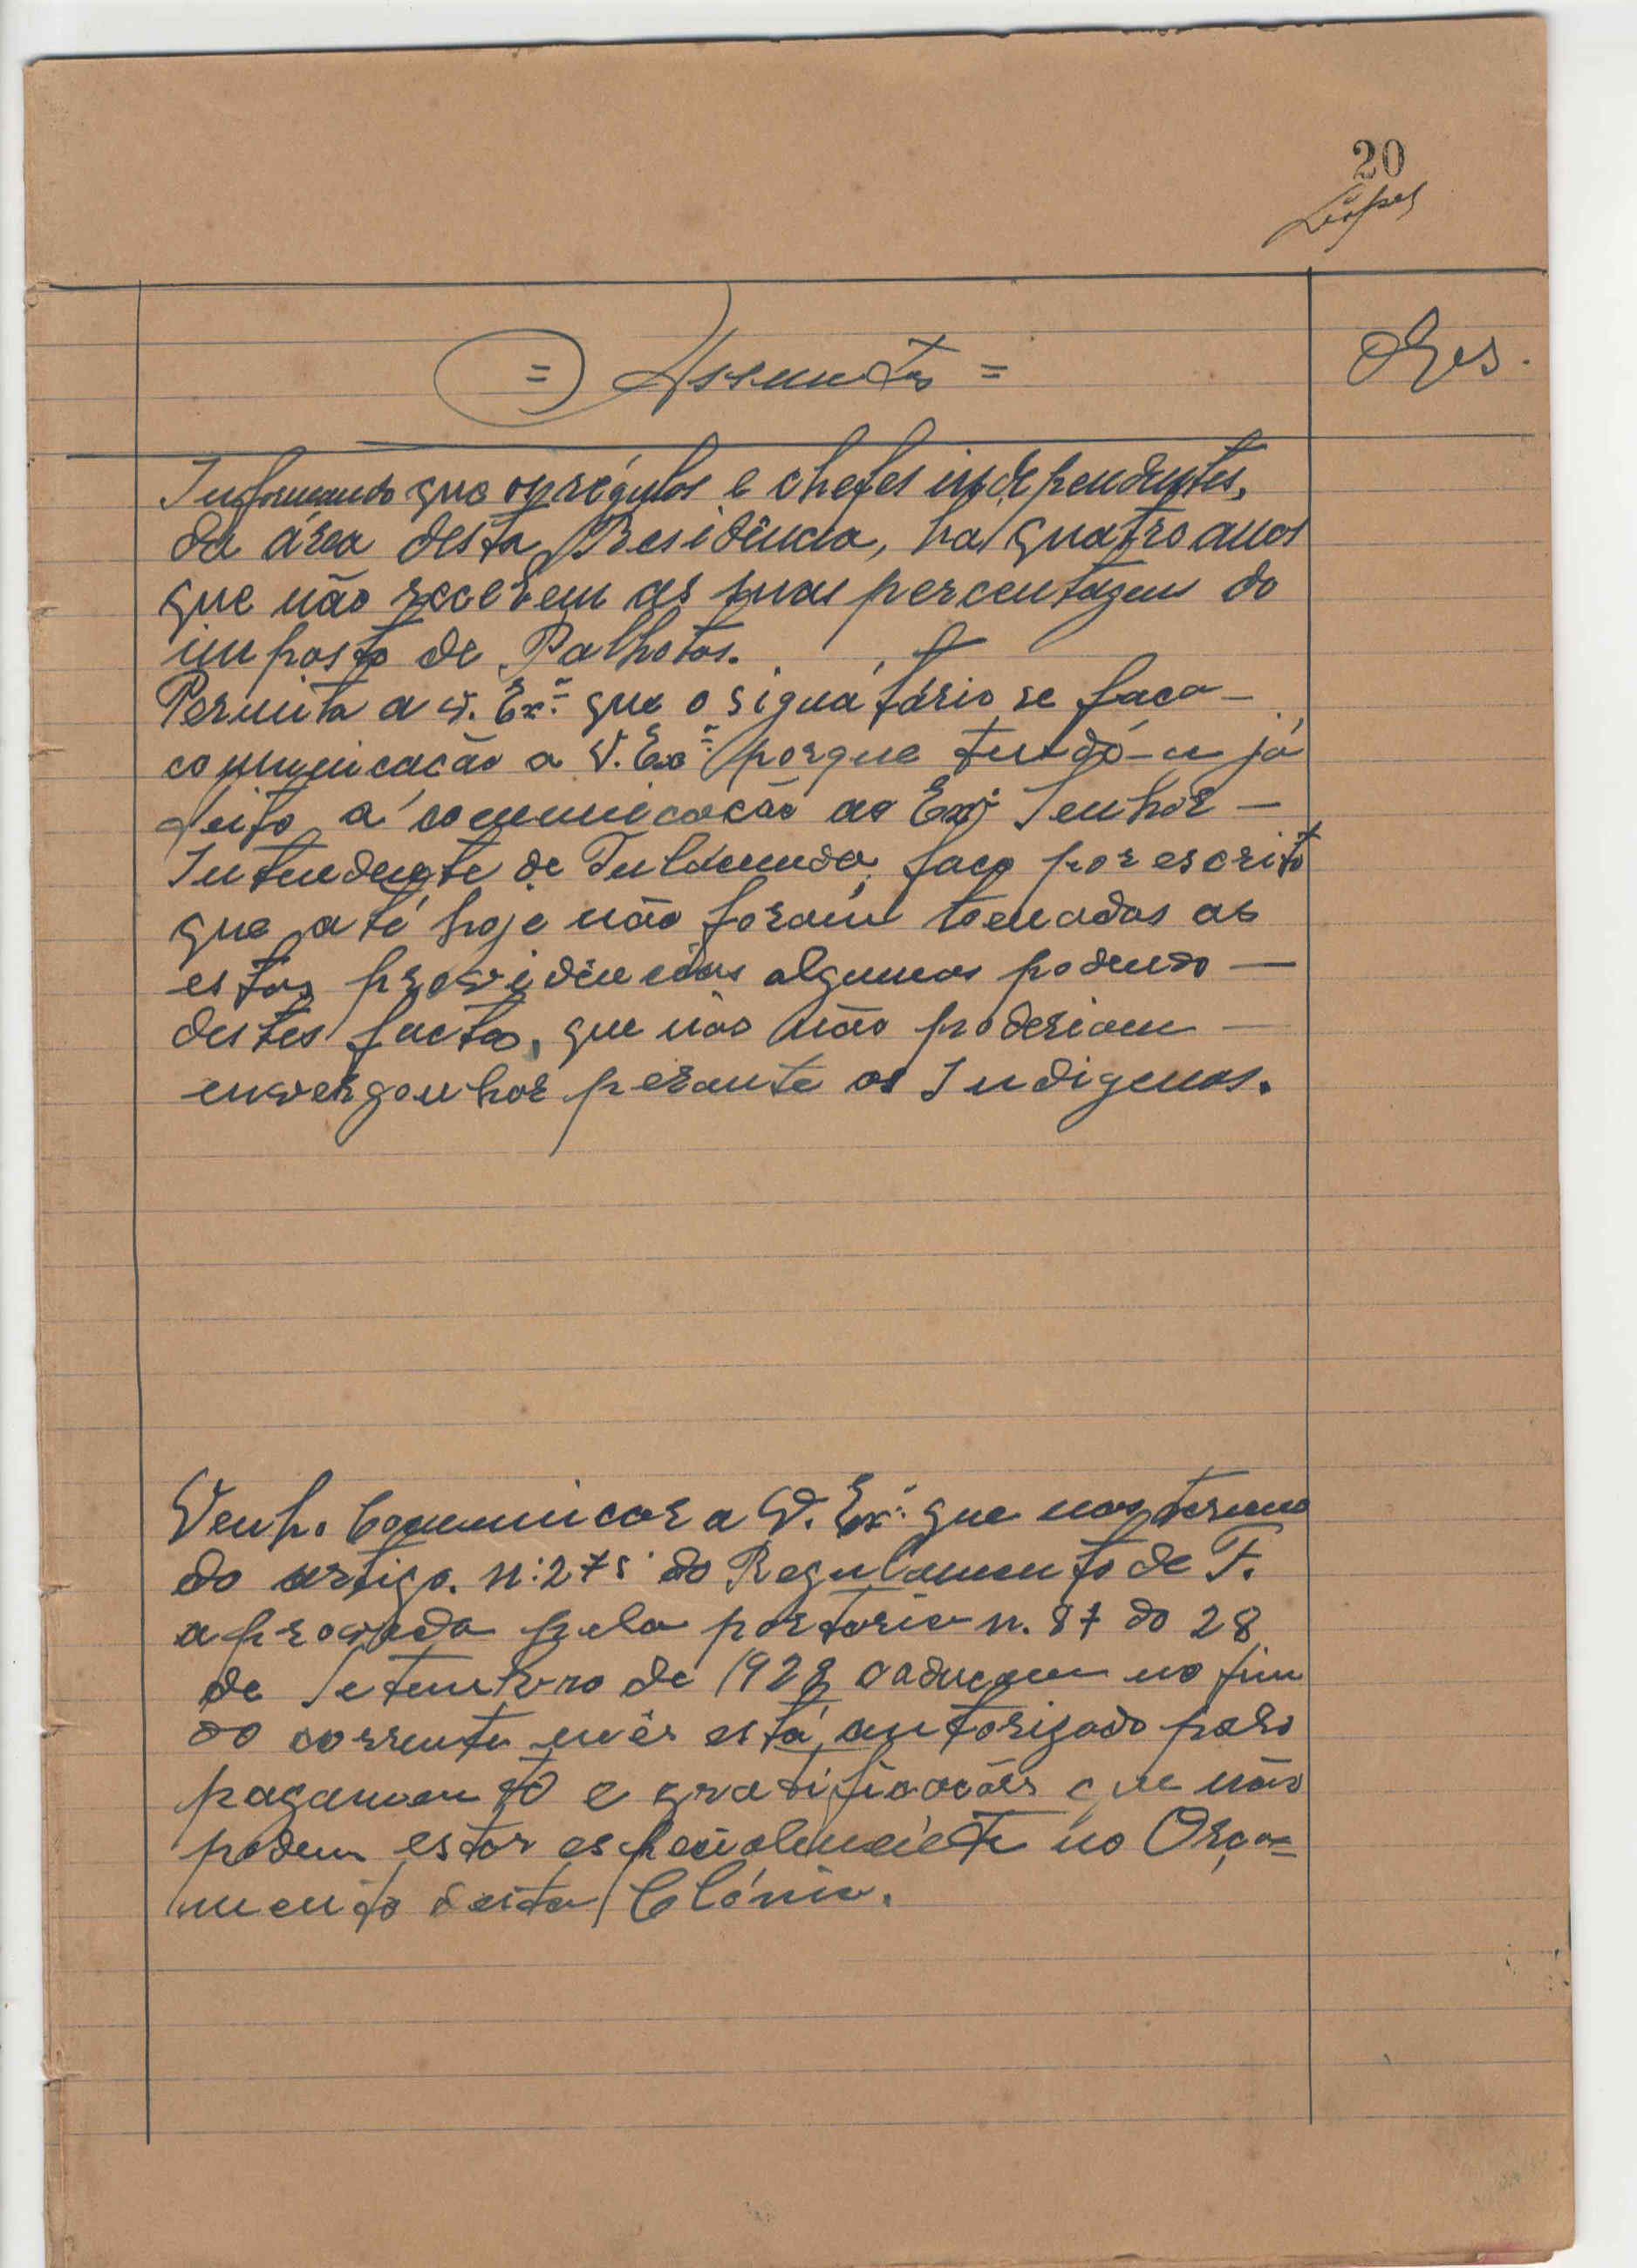 20
Lopes
= Assuntos =
Obs.
Informando que os régulos e chefes independentes,
da área desta Residência, ha quatro anos
que não recebem as suas percentagens do
imposto de Palhotas.
Permita a V. Exª que o signatário se faca —
comunicacão a V. Exª porque tendo-a já
feito a comunicacão ao Exº Senhor —
Intendente de faco por escrito
que até hoje não foram tomadas as
estas providências algumas podendo —
destes factos, que nos não poderiam —
envergonhar perante os Indigenas.
Venho Comunicar a V. Exª que nos termo
do artigo. nº 275 do Regulamento de F.
aprovada pela portaria n. 87 do 28
de Setembro de 1928 caducam no fim
do corrente mês está autorizado para
pagamento e gratificacões que não
podem estar especialmente no Orça=
mento desta Clónia.